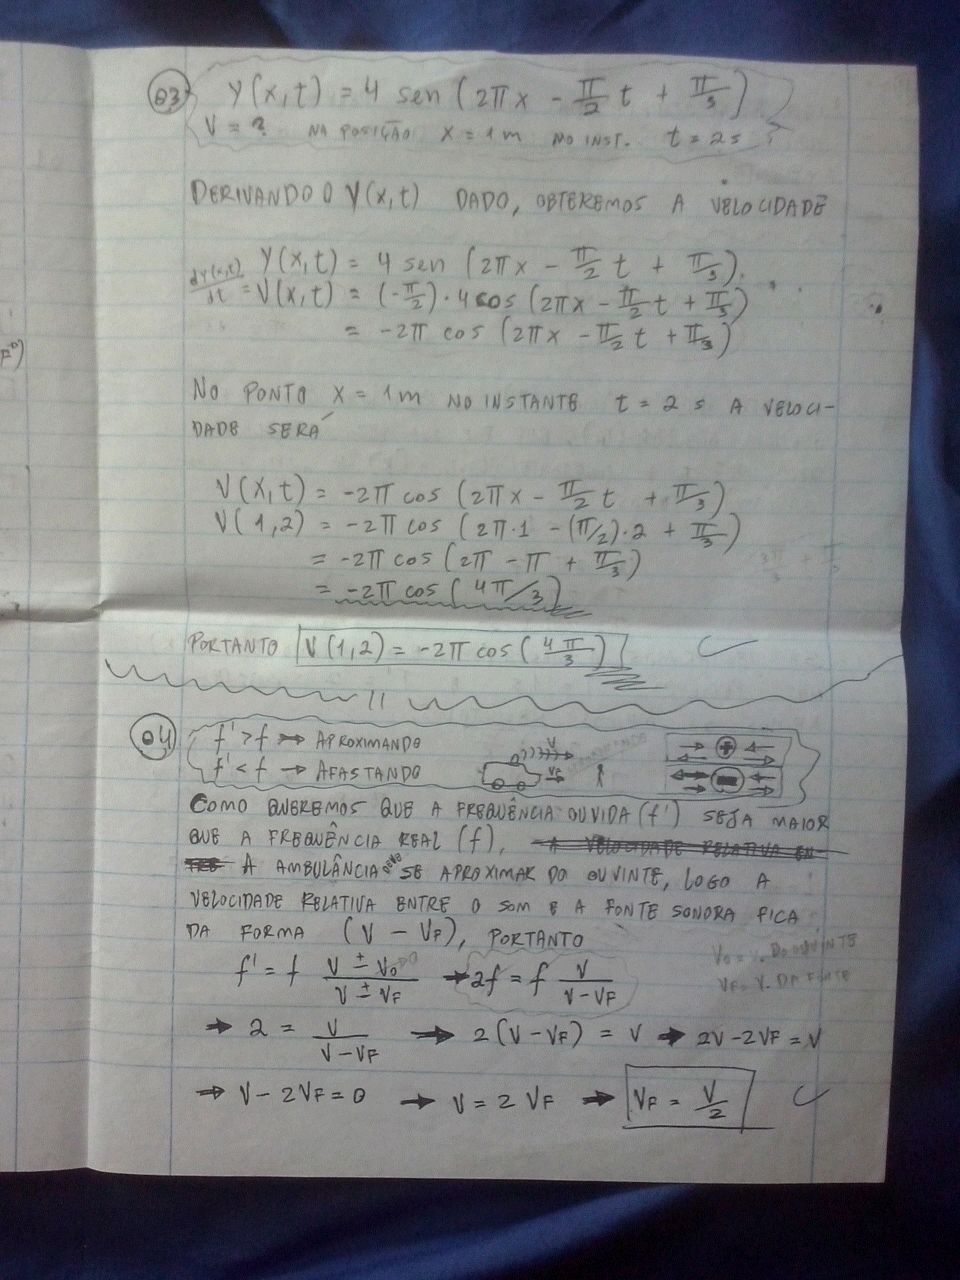 03 Y(x,t) = 4 sen (2πx - π/2 t + π/3)
V = ? NA POSIÇÃO X = 1m NO INST. t = 2s
DERIVANDO O Y(x,t) DADO, OBTEREMOS A VELOCIDADE
Y(x,t) = 4 sen (2πx - π/2 t + π/3).
dy(x,t)/dt = V(x,t) = (-π/2)·4cos (2πx - π/2 t + π/3)
= -2π cos (2πx - π/2 t + π/3)
NO PONTO X = 1m NO INSTANTE t = 2 s A VELOCI-
DADE SERÁ
V(x,t) = -2π cos (2πx - π/2 t + π/3)
V(1,2) = -2π cos (2π·1 - (π/2)·2 + π/3)
= -2π cos (2π - π + π/3)
= -2π cos (4π/3)
PORTANTO V(1,2) = -2π cos (4π/3)
04 f' > f → APROXIMANDO
f' < f → AFASTANDO
V
VF
COMO QUEREMOS QUE A FREQUÊNCIA OUVIDA (f') SEJA MAIOR
QUE A FREQUÊNCIA REAL (f),
A AMBULÂNCIA DEVE SE APROXIMAR DO OUVINTE, LOGO A
VELOCIDADE RELATIVA ENTRE O SOM E A FONTE SONORA FICA
DA FORMA (V - VF), PORTANTO
f' = f (V ± Vo)/(V ± VF) → 2f = f V/(V - VF)
Vo = V. DO OUVINTE
VF = V. DA FONTE
→ 2 = V/(V - VF) → 2(V - VF) = V → 2V - 2VF = V
→ V - 2VF = 0 → V = 2 VF → VF = V/2